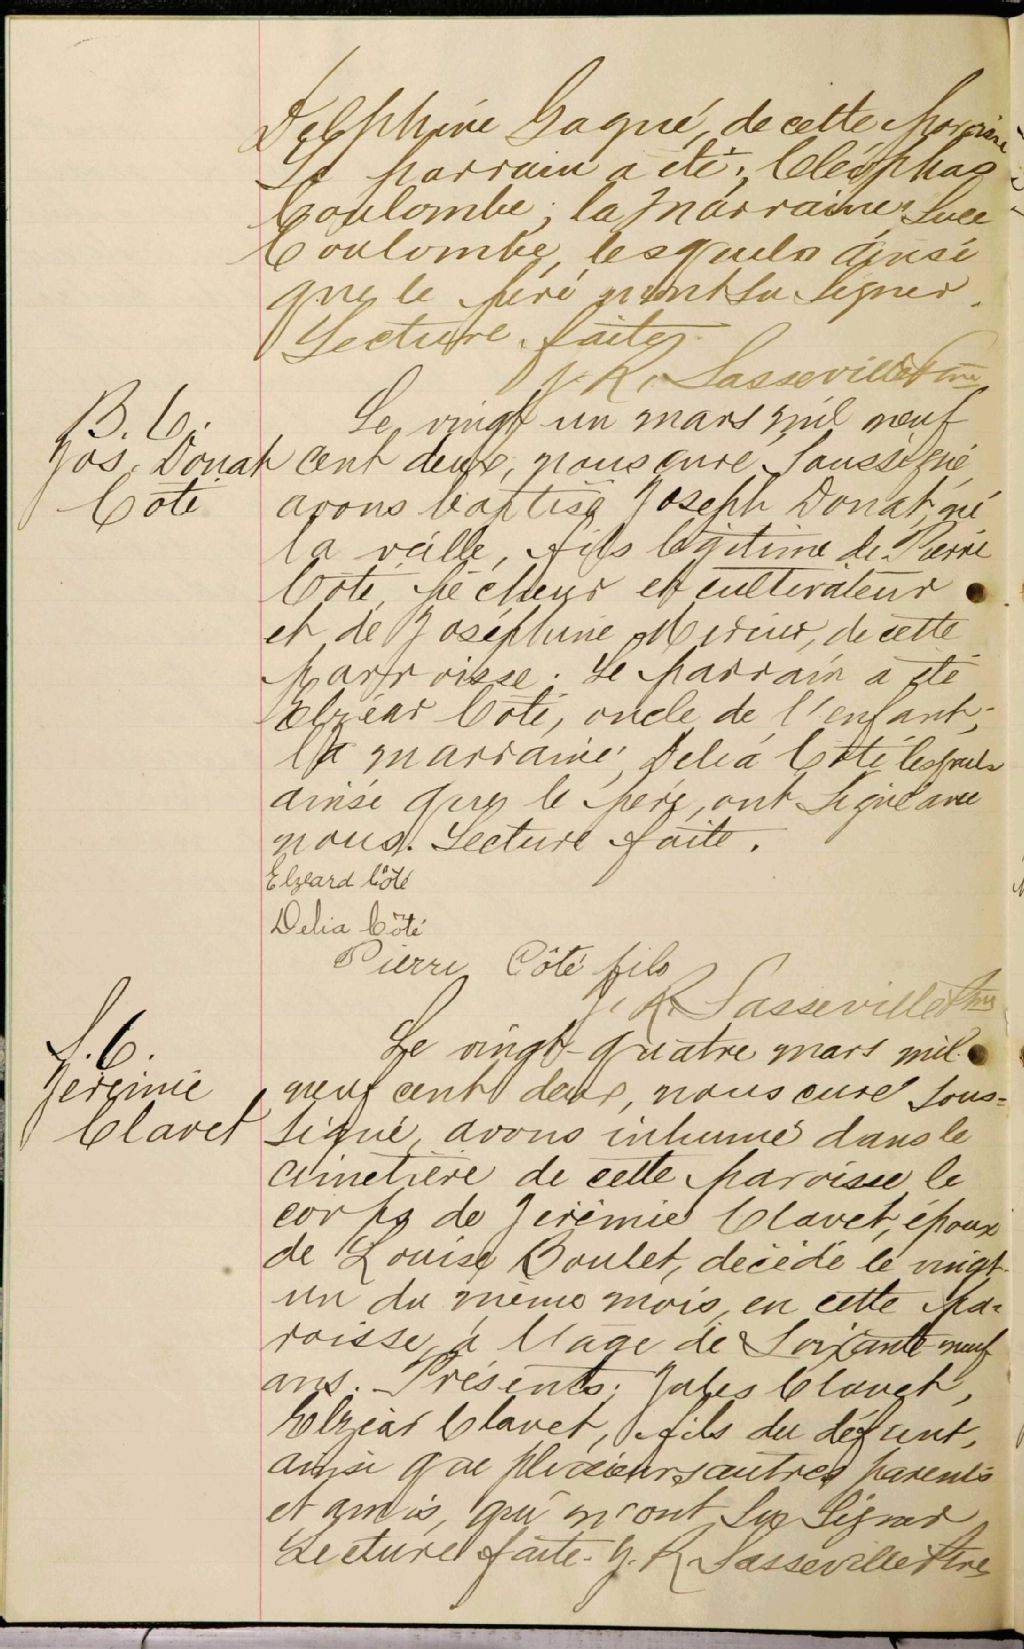 Delphine Gagné, de cette Paroisse
Le parrain a été, Cléophas
Coulombe; la Marraine, Luce
Coulombe, lesquels ainsi
que le père n'ont su signer.
Lecture faite.
J. R. Lasseville Ptre
B. 6.
Jos. Donat
Coté
Le vingt un mars mil neuf
cent deux, nous curé soussigné,
avons baptisé Joseph Donat, né
la veille, fils légitime de Pierre
Coté, pêcheur et cultivateur
et de Joséphine Mercier, de cette
parroisse. Le parrain a été
Elzéar Coté, oncle de l'enfant;
la marraine, Delia Coté lesquels
ainsi que le père, ont signé avec
nous. Lecture faite.
Elzeard Côté
Delia Côté
Pierre Côté fils
J. R. Lasseville Ptre
S. 6.
Jérémie
Clavet
Le vingt-quatre mars mil
neuf cent deux, nous curé sous=
signé, avons inhumé dans le
cimetière de cette paroisse le
corps de Jérémie Clavet, époux
de Louise Boulet, décédé le vingt-
un du même mois, en cette pa-
roisse, à l'âge de soixante-neuf
ans. Présents: Jules Clavet,
Elzéar Clavet, fils du défunt,
ainsi que plusieurs autres parents
et amis, qui n'ont su signer
Lecture faite. J. R. Lasseville Ptre